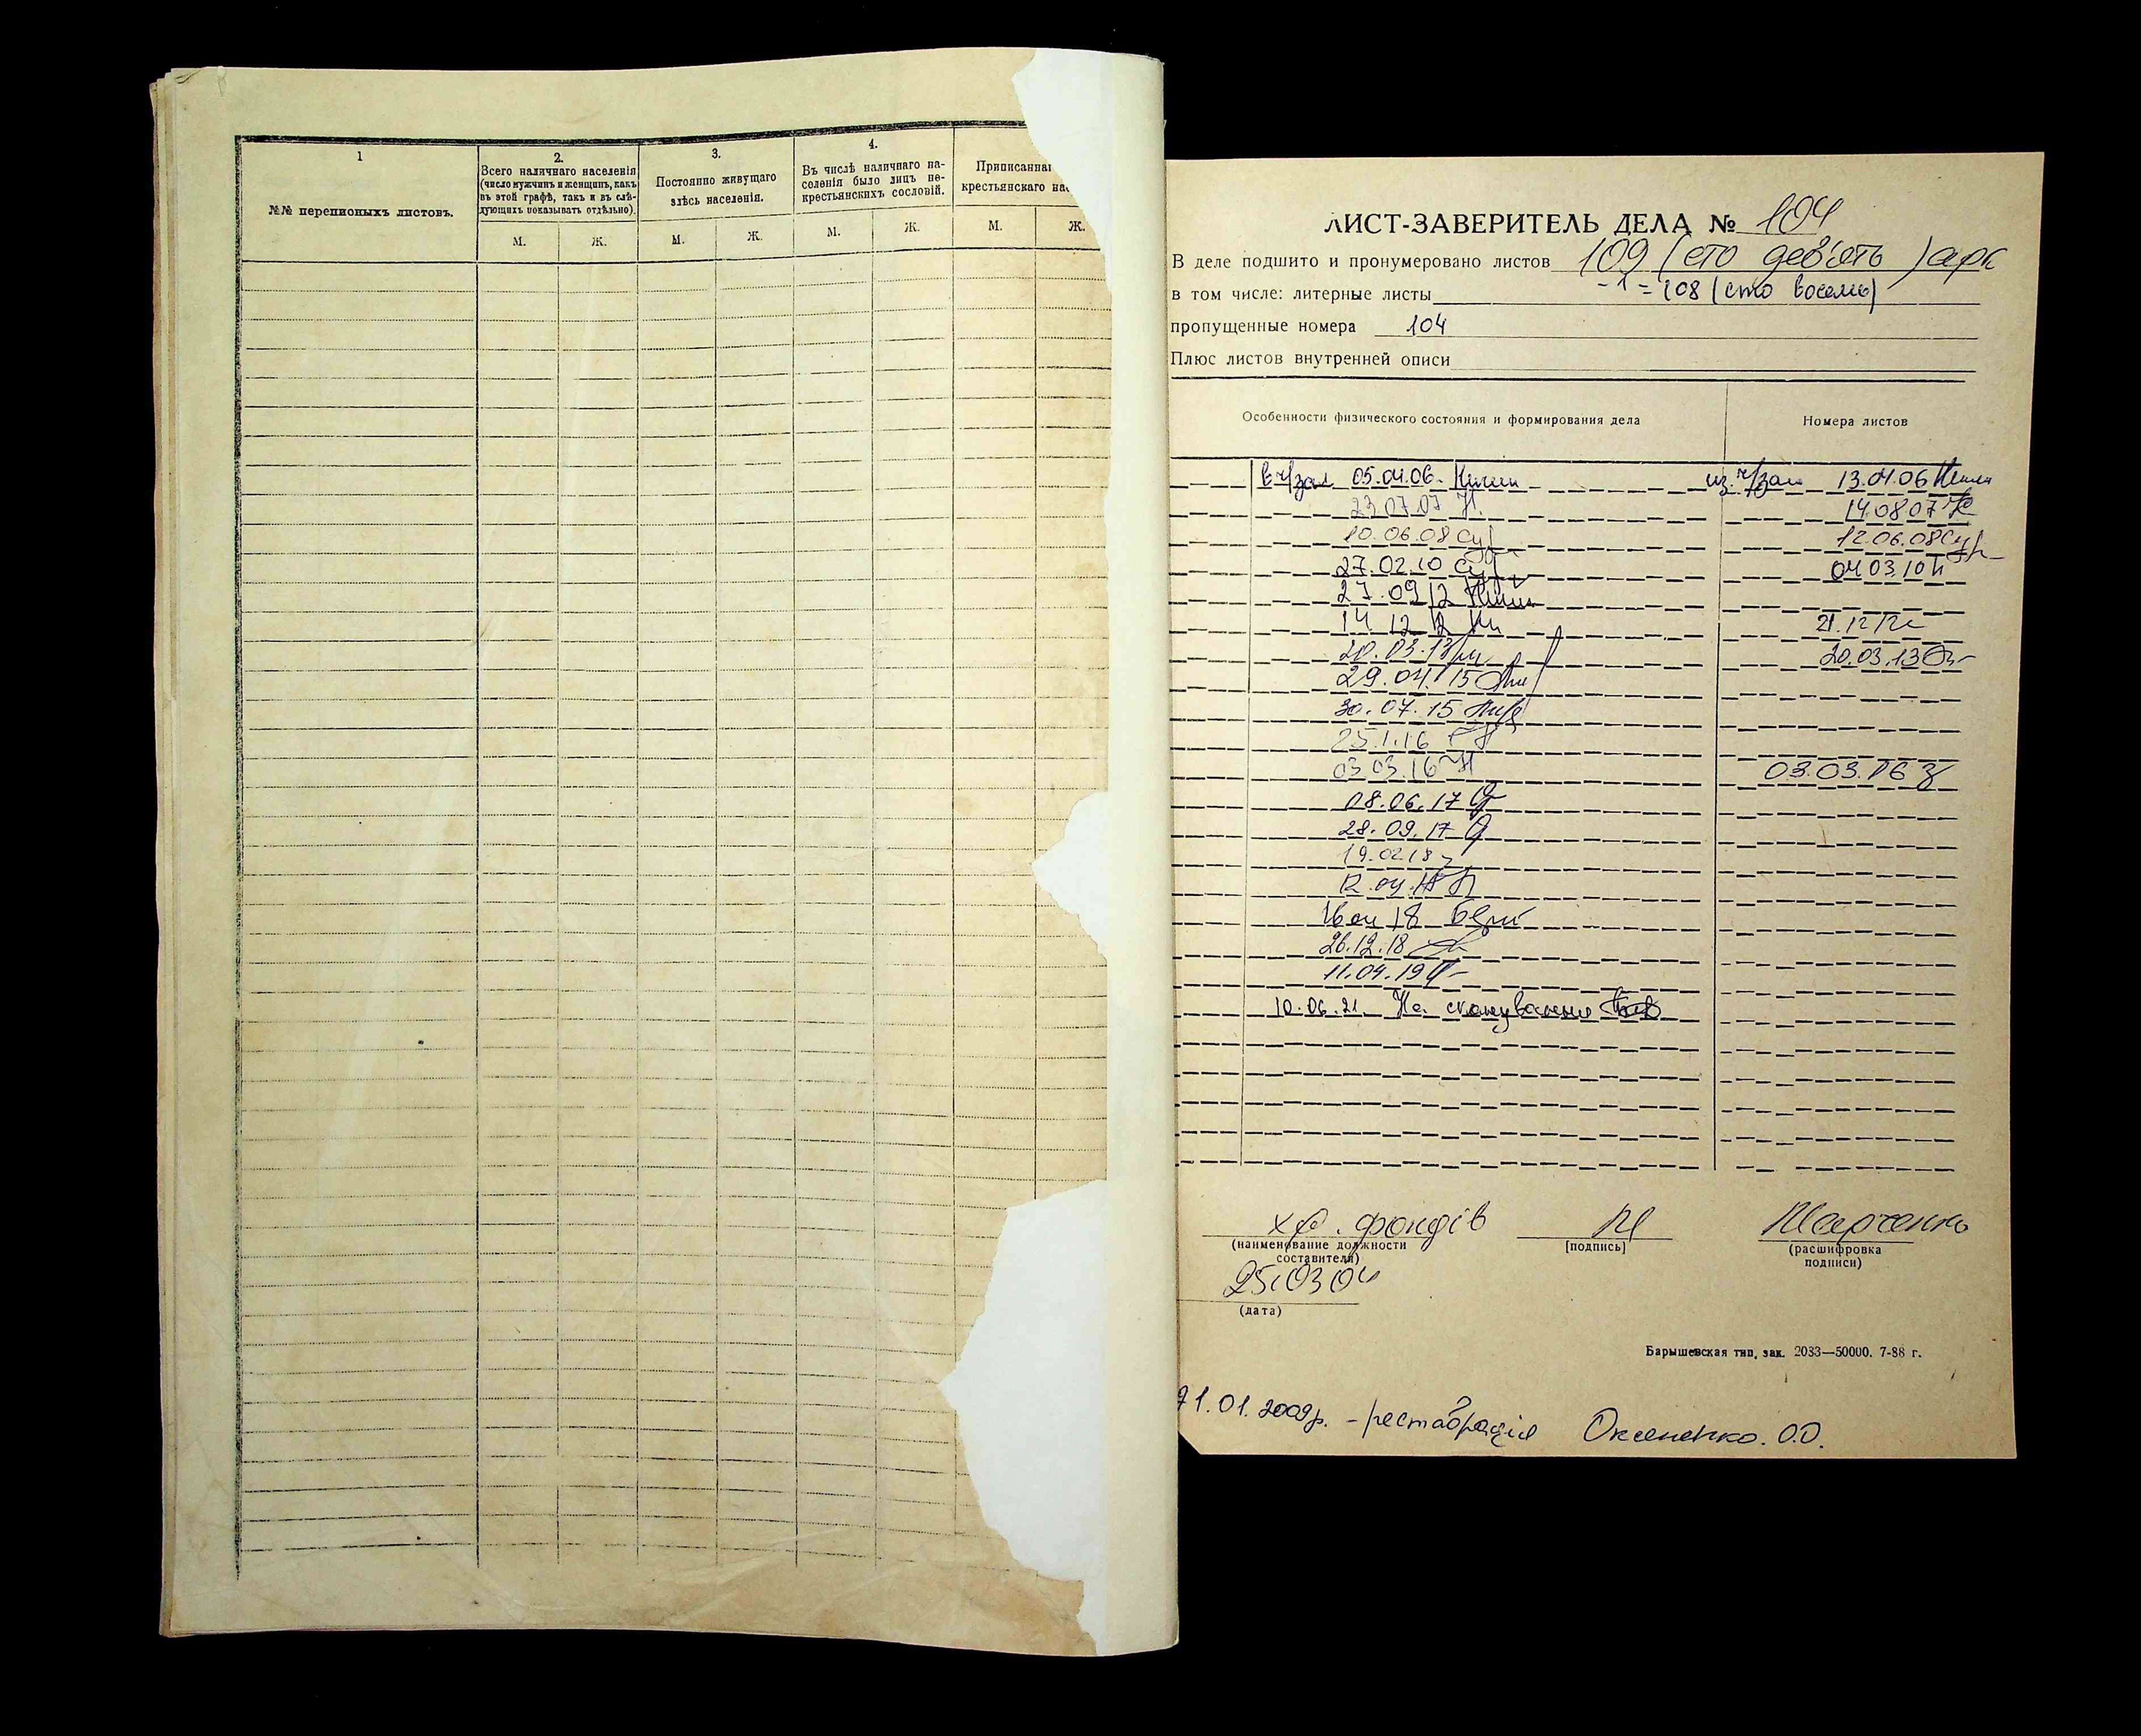 1
№№ переписныхъ листовъ.
2.
Всего наличнаго населенія
(число мужчинъ и женщинъ, какъ
въ этой графѣ, такъ и въ слѣ-
дующихъ показывать отдѣльно).
М. Ж.
3.
Постоянно живущаго
здѣсь населенія.
М. Ж.
4.
Въ числѣ наличнаго на-
селенія было лицъ не-
крестьянскихъ сословій.
М. Ж.
Приписанна
крестьянскаго на
М. Ж.
ЛИСТ-ЗАВЕРИТЕЛЬ ДЕЛА № 104
В деле подшито и пронумеровано листов 109 (сто дев'ять) арк
-1 = 108 (сто восемь)
в том числе: литерные листы
пропущенные номера 104
Плюс листов внутренней описи
Особенности физического состояния и формирования дела Номера листов
в ч/зал 05.04.06. из ч/зал 13.04.06
23.07.07 14.08.07
10.06.08 12.06.08
27.02.10 04.03.10
27.09.12
14.12.12 21.12.12
20.03.13 20.03.13
29.04.15
30.07.15
25.1.16
03.03.16 03.03.16
08.06.17
28.09.17
19.02.18
12.04.18
18
26.12.18
11.04.19
10.06.21 На сканування
хр. фондів Марченко
(наименование должности
составителя)
[подпись]
(расшифровка
подписи)
25.03.04
(дата)
Барышевская тип. зак. 2033—50000. 7-88 г.
21.01.2009р. - реставрація Оксененко. О.О.